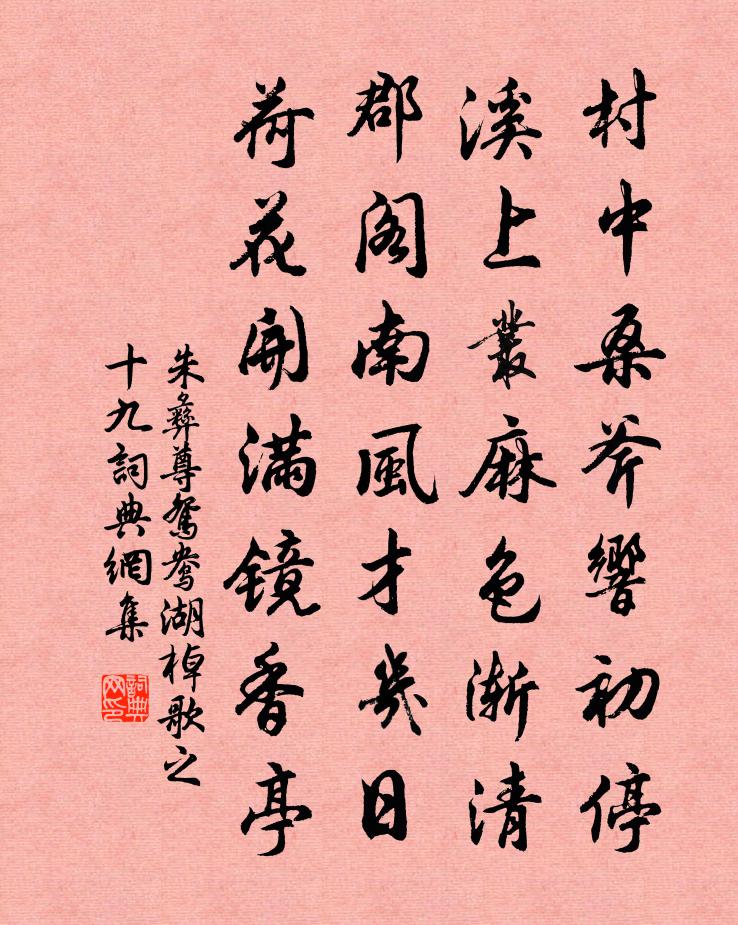 村中桑斧響初停
溪上叢麻色漸清
郡閣南風才幾日
荷花開滿鏡香亭
朱彝尊鴛鴦湖棹歌之
十九詞典網集
詞典
网印